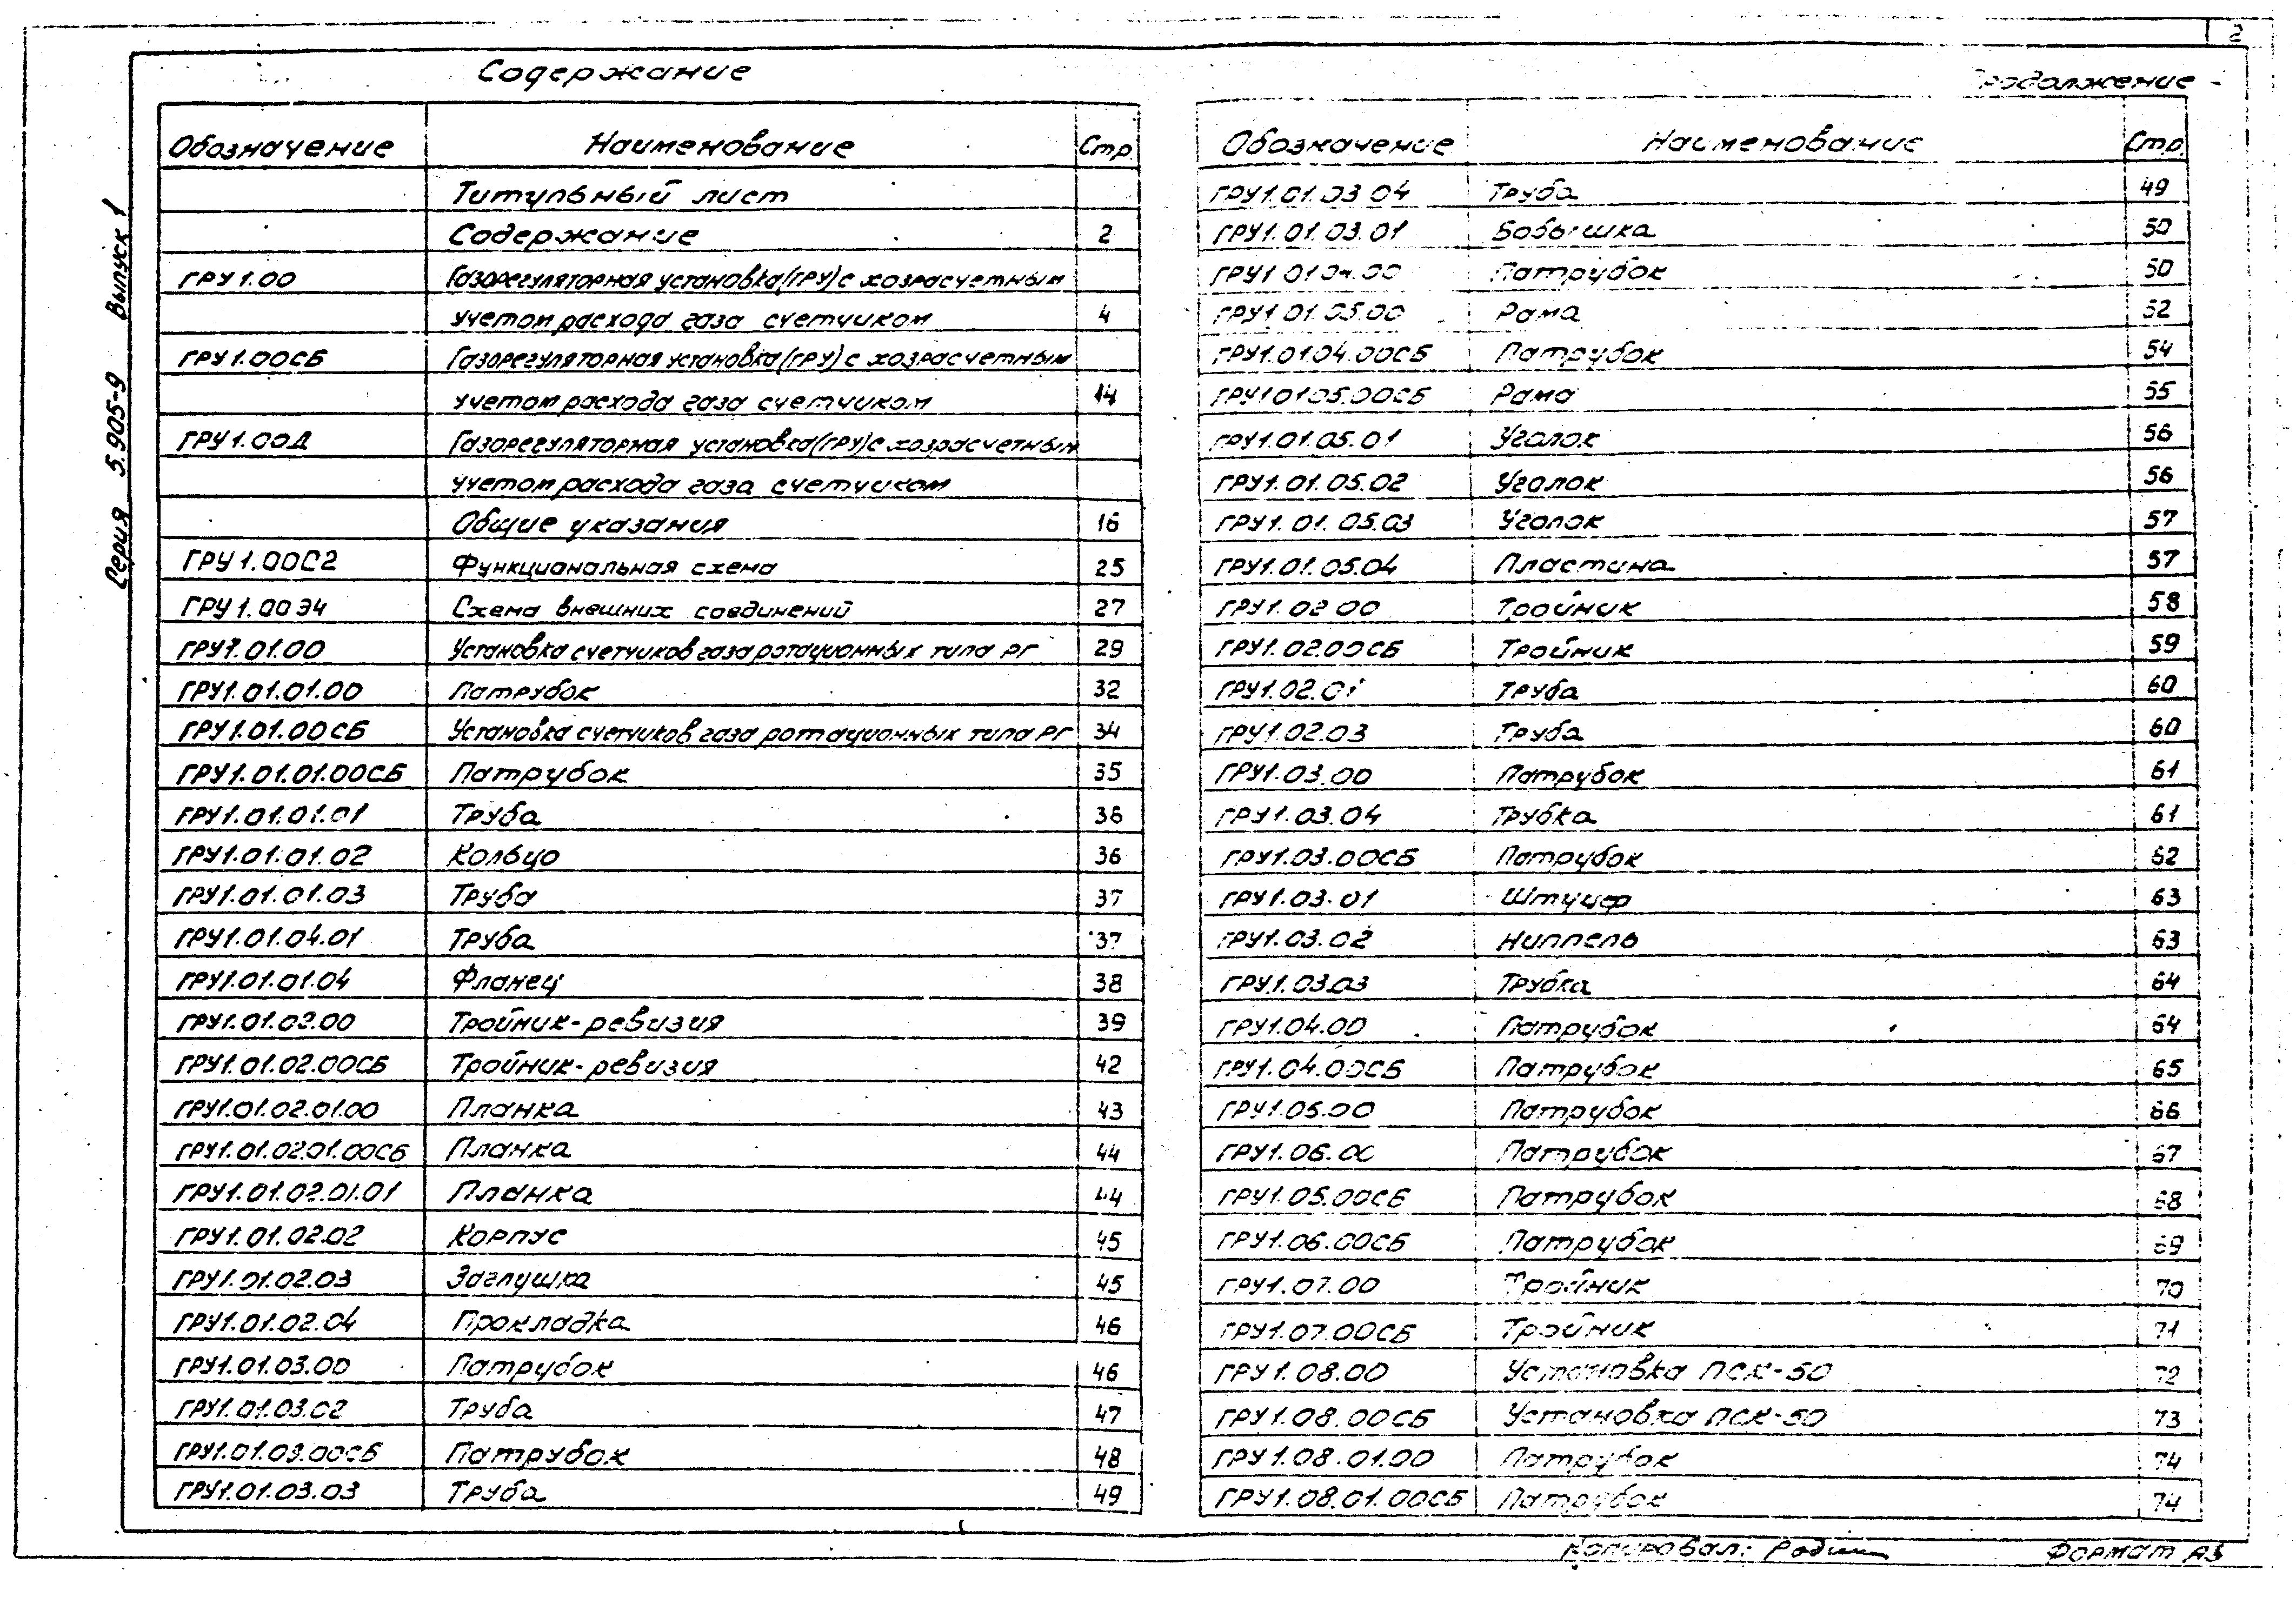 2
Серия 5.905-9 Выпуск 1
Содержание
Обозначение Наименование Стр.
Титульный лист
Содержание 2
ГРУ1.00 Газорегуляторная установка(ГРУ) с хозрасчетным
учетом расхода газа счетчиком 4
ГРУ1.00СБ Газорегуляторная установка(ГРУ) с хозрасчетным
учетом расхода газа счетчиком 14
ГРУ1.00Д Газорегуляторная установка(ГРУ)с хозрасчетным
учетом расхода газа счетчиком
Общие указания 16
ГРУ1.00С2 Функциональная схема 25
ГРУ1.00Э4 Схема внешних соединений 27
ГРУ1.01.00 Установка счетчиков газа ротационных типа РГ 29
ГРУ1.01.01.00 Патрубок 32
ГРУ1.01.00СБ Установка счетчиков газа ротационных типа РГ 34
ГРУ1.01.01.00СБ Патрубок 35
ГРУ1.01.01.01 Труба 36
ГРУ1.01.01.02 Кольцо 36
ГРУ1.01.01.03 Труба 37
ГРУ1.01.04.01 Труба 37
ГРУ1.01.01.04 Фланец 38
ГРУ1.01.02.00 Тройник-ревизия 39
ГРУ1.01.02.00СБ Тройник-ревизия 42
ГРУ1.01.02.01.00 Планка 43
ГРУ1.01.02.01.00СБ Планка 44
ГРУ1.01.02.01.01 Планка 44
ГРУ1.01.02.02 Корпус 45
ГРУ1.01.02.03 Заглушка 45
ГРУ1.01.02.04 Прокладка 46
ГРУ1.01.03.00 Патрубок 46
ГРУ1.01.03.02 Труба 47
ГРУ1.01.03.00СБ Патрубок 48
ГРУ1.01.03.03 Труба 49
Продолжение
Обозначение Наименование Стр.
ГРУ1.01.03.04 Труба 49
ГРУ1.01.03.01 Бобышка 50
ГРУ1.01.04.00 Патрубок 50
ГРУ1.01.05.00 Рама 52
ГРУ1.01.04.00СБ Патрубок 54
ГРУ1.01.05.00СБ Рама 55
ГРУ1.01.05.01 Уголок 56
ГРУ1.01.05.02 Уголок 56
ГРУ1.01.05.03 Уголок 57
ГРУ1.01.05.04 Пластина 57
ГРУ1.02.00 Тройник 58
ГРУ1.02.00СБ Тройник 59
ГРУ1.02.01 Труба 60
ГРУ1.02.03 Труба 60
ГРУ1.03.00 Патрубок 61
ГРУ1.03.04 Трубка 61
ГРУ1.03.00СБ Патрубок 62
ГРУ1.03.01 Штуцер 63
ГРУ1.03.02 Ниппель 63
ГРУ1.03.03 Трубка 64
ГРУ1.04.00 Патрубок 64
ГРУ1.04.00СБ Патрубок 65
ГРУ1.05.00 Патрубок 66
ГРУ1.06.00 Патрубок 67
ГРУ1.05.00СБ Патрубок 68
ГРУ1.06.00СБ Патрубок 69
ГРУ1.07.00 Тройник 70
ГРУ1.07.00СБ Тройник 71
ГРУ1.08.00 Установка ПСК-50 72
ГРУ1.08.00СБ Установка ПСК-50 73
ГРУ1.08.01.00 Патрубок 74
ГРУ1.08.01.00СБ Патрубок 74
Копировал: Формат А3